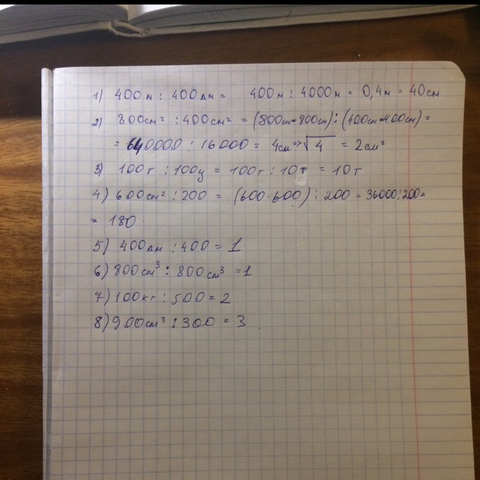 1) 400м : 400дм = 400м : 4000м = 0,4м = 40см
2) 800см² : 400см² = (800см*800см):(400см*400см)=
= 640000 : 16000 = 4см => √4 = 2см²
3) 100т : 100ц = 100т : 10т = 10т
4) 600см² : 200 = (600·600) : 200 = 36000:200=
= 180
5) 400дм : 400 = 1
6) 800см³ : 800см³ = 1
7) 100кг : 500 = 2
8) 900см³ : 300 = 3